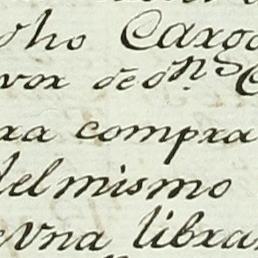 dho Cargo
vor de dn.s C
ra compra
del mismo
e Una libra